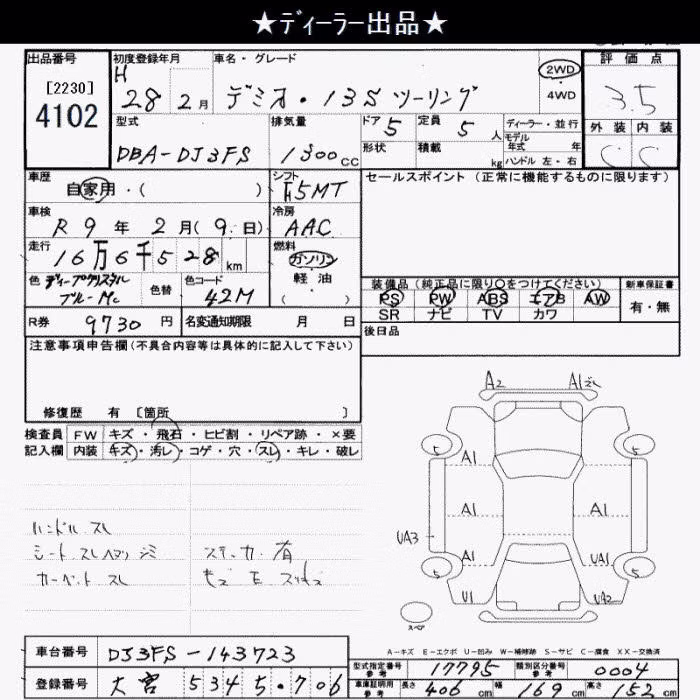 ★ディーラー出品★
出品番号
[2230]
4102
初度登録年月
H
28 2月
車名・グレード
デミオ・13S ツーリング
2WD
4WD
評価点
3.5
外装 内装
C C
型式
DBA-DJ3FS
排気量
1300cc
ドア 5
形状
定員 5 人
積載 kg
ディーラー・並行
モデル
年式 年
ハンドル 左・右
車歴
自家用・( )
シフト
F5MT
セールスポイント (正常に機能するものに限ります)
車検
R9年2月(9日)
冷房
AAC
走行
16万6千528 km
燃料
ガソリン
軽油
( )
色 ディープクリスタル
ブルーMc
色替
色コード
42M
装備品 (純正品に限り○をつけてください)
PS PW ABS エアB AW
SR ナビ TV カワ
新車保証書
有・無
R券 9730円
名変通知期限 月 日
後日品
注意事項申告欄(不具合内容等は具体的に記入して下さい)
修復歴 有 〔箇所 〕
検査員
記入欄
FW キズ・飛石・ヒビ割・リペア跡・×要
内装 キズ・汚レ・コゲ・穴・スレ・キレ・破レ
ハンドル スレ
シート スレ ヘタリ シミ
カーペット スレ
ステッカー有
A2 A1
5 5
A1
A1 A1
UA3 A1 UA1
5 5
U1 UA1
スペア
A-キズ E-エクボ U-凹み W-補修跡 S-サビ C-腐食 XX-交換済
車台番号 DJ3FS-143723
登録番号 大宮 534 5・706
型式指定番号
参考
17795
類別区分番号
参考
0004
車庫証明用
参考
長さ 406 cm 幅 169 cm 高さ 152 cm